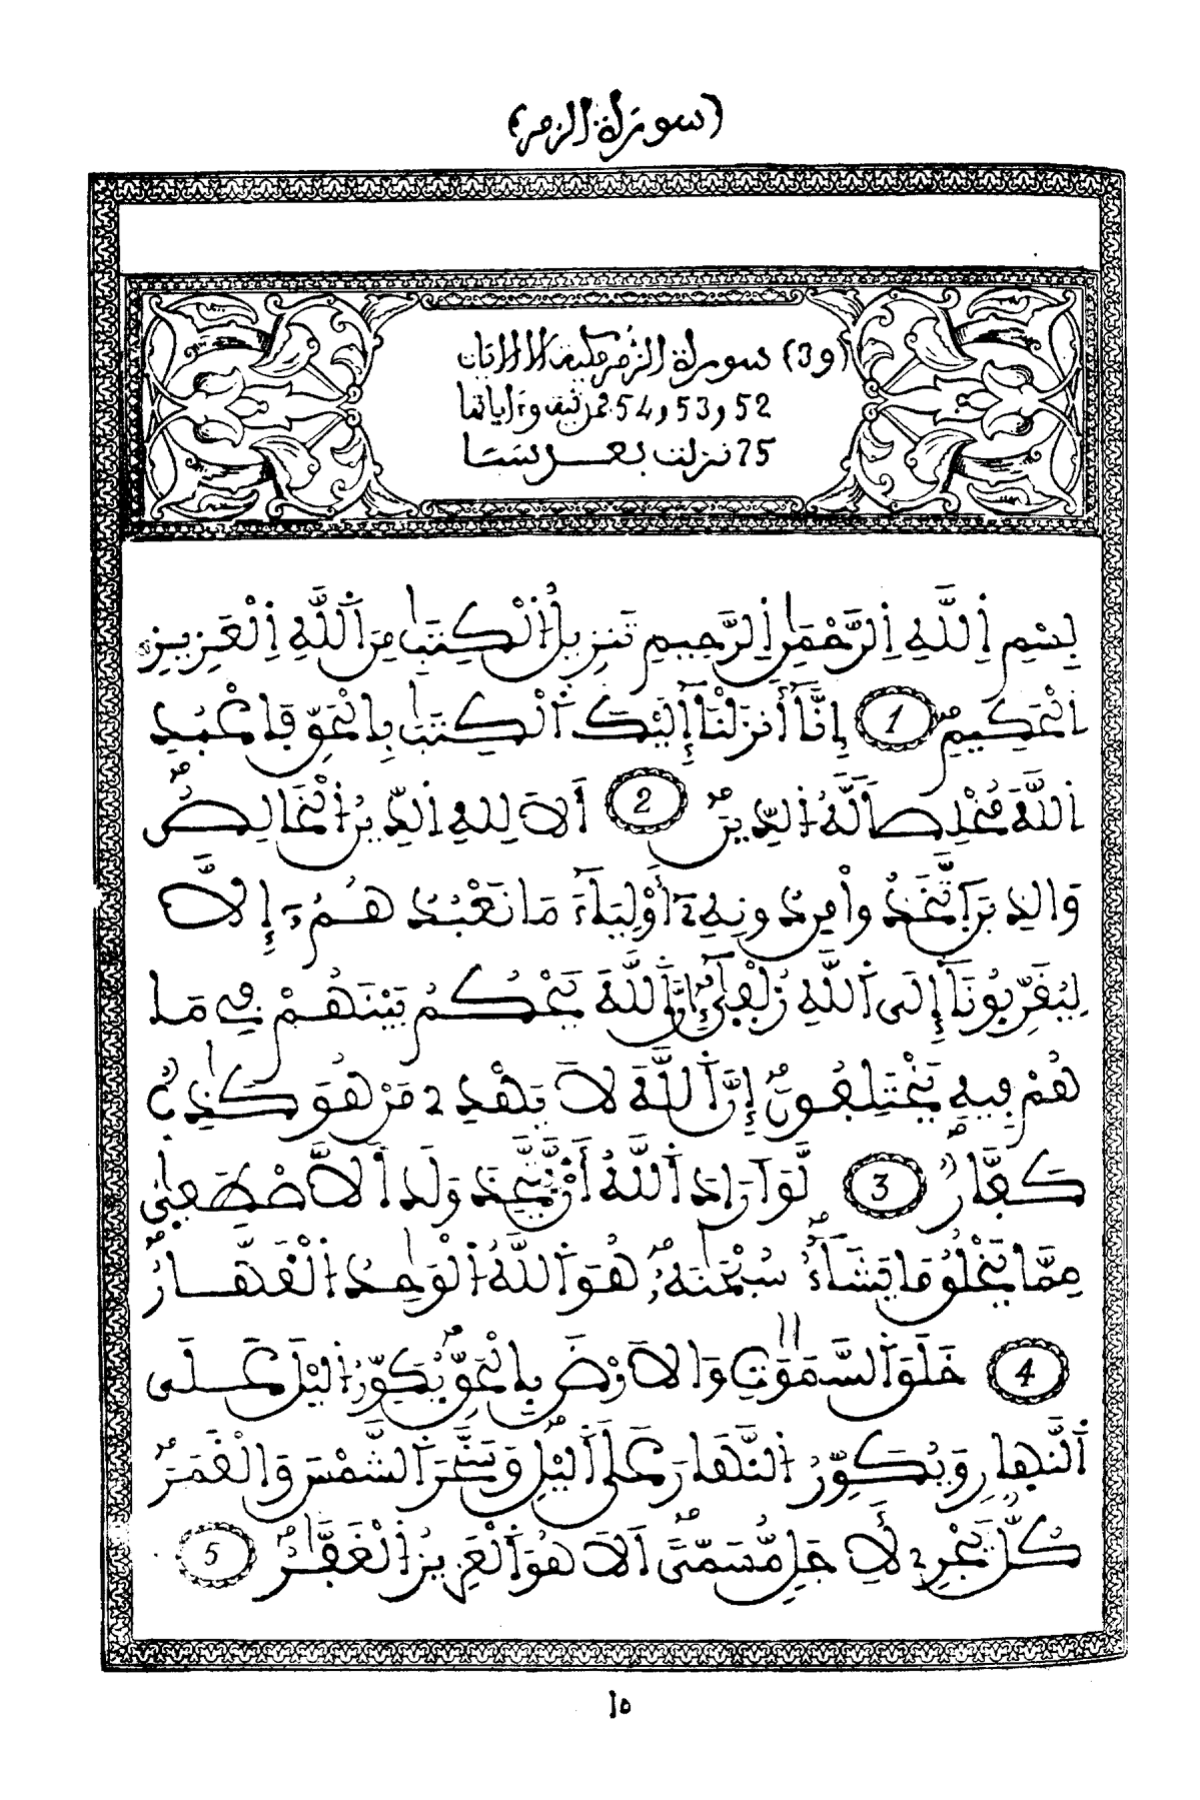 (سورة الزمر)
(39) سورة الزُّمر مكية الا الايات
52 و53 و54 فمدنية وءاياتها
75 نزلت بعد سبا
بِسْمِ اِ۬للَّهِ اِ۬لرَّحْمَٰنِ اِ۬لرَّحِيمِ تَنزِيلُ اُ۬لْكِتَٰبِ مِنَ اَ۬للَّهِ اِ۬لْعَزِيزِ
اِ۬لْحَكِيمِ 1 إِنَّآ أَنزَلْنَآ إِلَيْكَ اَ۬لْكِتَٰبَ بِالْحَقِّ فَاعْبُدِ
اِ۬للَّهَ مُخْلِصاٗ لَّهُ اُ۬لدِّينَ 2 أَلَا لِلهِ اِ۬لدِّينُ اُ۬لْخَالِصُ
وَالذِينَ اَ۪تَّخَذُواْ مِن دُونِهِۦٓ أَوْلِيَآءَ مَا نَعْبُدُهُمُۥٓ إِلَّا
لِيُقَرِّبُونَآ إِلَى اَ۬للَّهِ زُلْف۪يٰٓ إِنَّ اَ۬للَّهَ يَحْكُمُ بَيْنَهُمْ فِے مَا
هُمْ فِيهِ يَخْتَلِفُونَ إِنَّ اَ۬للَّهَ لَا يَهْدِے مَنْ هُوَ كَٰذِبٞ
كَفَّارٞ 3 لَّوَ اَرَادَ اَ۬للَّهُ أَنْ يَّتَّخِذَ وَلَداٗ لَّاصْطَف۪يٰ
مِمَّا يَخْلُقُ مَا يَشَآءُ سُبْحَٰنَهُۥ هُوَ اَ۬للَّهُ اُ۬لْوَٰحِدُ اُ۬لْقَهَّارُ
4 خَلَقَ اَ۬لسَّمَٰوَٰتِ وَالَارْضَ بِالْحَقِّ يُكَوِّرُ اُ۬ليْلَ عَلَي
اَ۬لنَّهارِ وَيُكَوِّرُ اُ۬لنَّهَارَ عَلَي اَ۬ليْلِ وَسَخَّرَ اَ۬لشَّمْسَ وَالْقَمَرَ
كُلّٞ يَجْرِے لِأَجَلٖ مُّسَمّيً اَلَا هُوَ اَ۬لْعَزِيزُ اُ۬لْغَفَّٰرُ 5
١٥